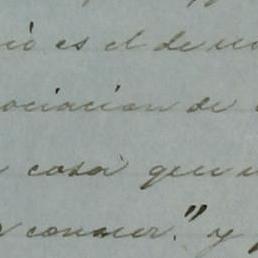 es el de
ociacion de
casa que
conocer." y